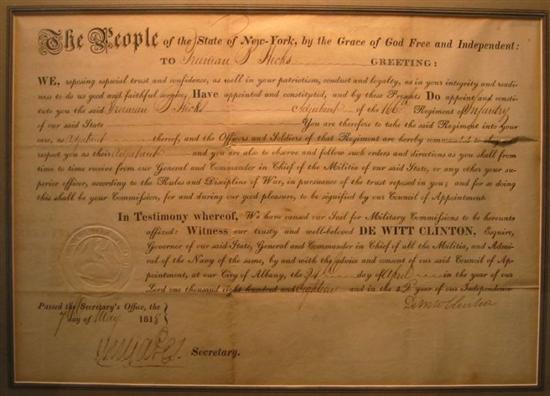 The People of the State of New-York, by the Grace of God Free and Independent:
TO Truman S Hicks GREETING:
WE, reposing especial trust and confidence, as well in your patriotism, conduct and loyalty, as in your integrity and readi-
ness to do us good and faithful service, Have appointed and constituted, and by these Presents Do appoint and consti-
tute you the said Truman S Hicks Adjutant of the 166th Regiment of Infantry
of our said State You are therefore to take the said Regiment into your
care, as Adjutant thereof, and the Officers and Soldiers of that Regiment are hereby commanded to obey and
respect you as their Adjutant and you are also to observe and follow such orders and directions as you shall from
time to time receive from our General and Commander in Chief of the Militia of our said State, or any other your su-
perior officer, according to the Rules and Discipline of War, in pursuance of the trust reposed in you; and for so doing
this shall be your Commission, for and during our good pleasure, to be signified by our Council of Appointment.
In Testimony whereof, We have caused our Seal for Military Commissions to be hereunto
affixed: Witness our trusty and well-beloved DE WITT CLINTON, Esquire,
Governor of our said State, General and Commander in Chief of all the Militia, and Admi-
ral of the Navy of the same, by and with the advice and consent of our said Council of Ap-
pointment, at our City of Albany, the 24th day of April in the year of our
Lord one thousand eight hundred and Eighteen and in the year of our Independence
DeWitt Clinton
Passed the Secretary's Office, the
7th day of May 1818
Secretary.